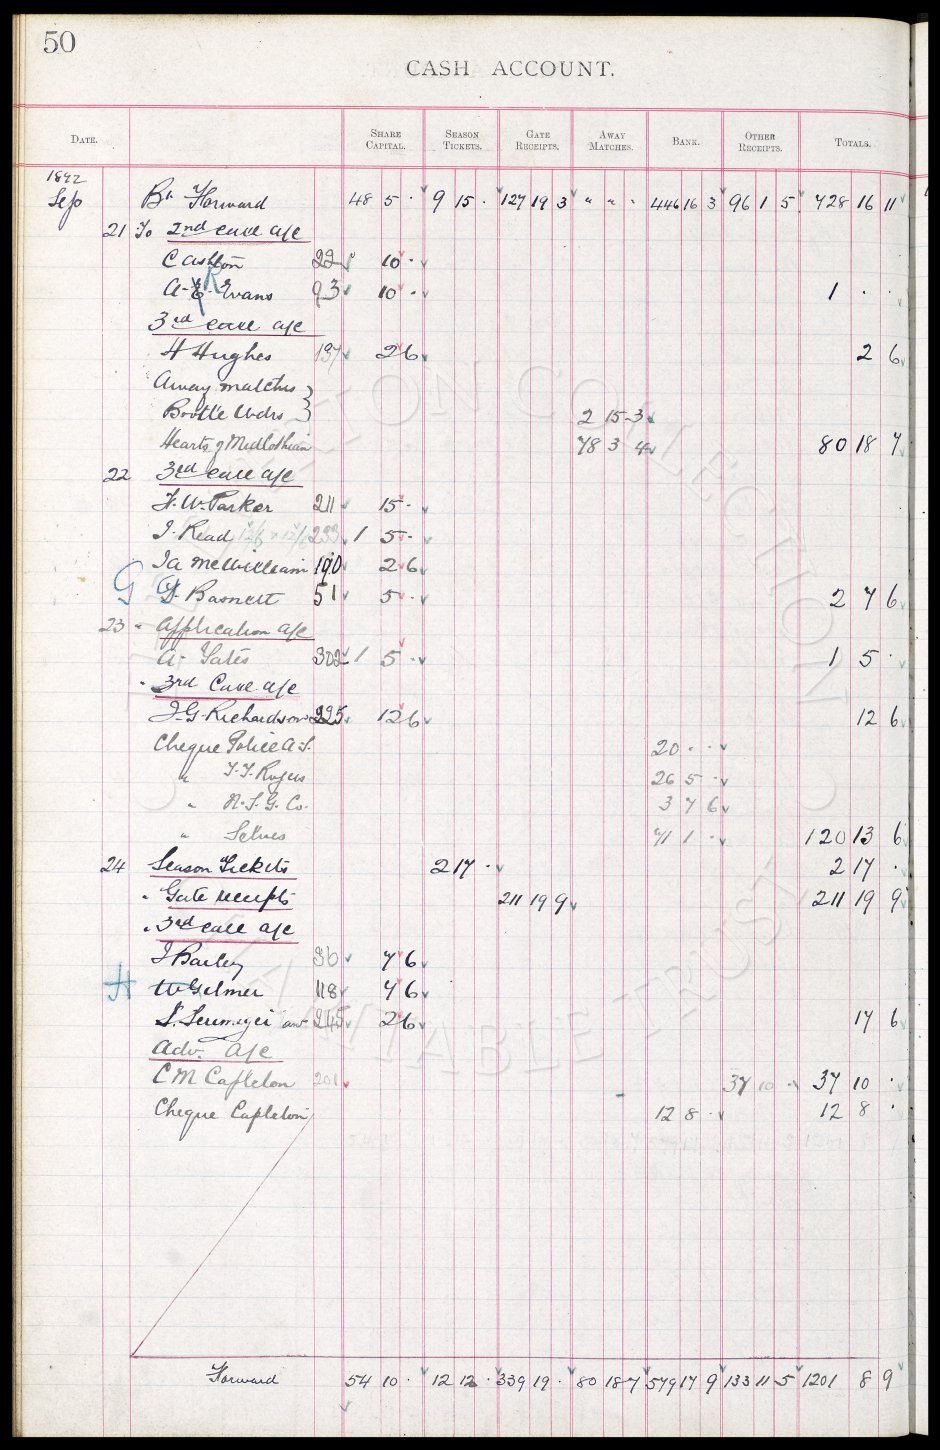 50
CASH ACCOUNT.
DATE. SHARE CAPITAL. SEASON TICKETS. GATE RECEIPTS. AWAY MATCHES. BANK. OTHER RECEIPTS. TOTALS.
1892
Sep Bt Forward 48 5 · 9 15 · 127 19 3 " " " 446 16 3 96 1 5 728 16 11
21 To 2nd call a/c
C Ashton 22 10 ·
A. R. Evans 93 10 · 1 · ·
3rd call a/c
H Hughes 137 2 6 2 6
Away matches
Bootle Wdrs 2 15 3
Hearts of Midlothian 78 3 4 80 18 7
22 3rd call a/c
F. W. Parker 211 15 ·
J. Read 233 1 5 ·
Ja McWilliam 190 2 6
G Barnett 51 5 · 2 7 6
23 " Application a/c
A. Gates 302 1 5 · 1 5 ·
" 3rd Call a/c
J. G. Richardson 225 12 6 12 6
Cheque Police A. S. 20 · ·
" T. J. Rogers 26 5 ·
" N. S. G. Co. 3 7 6
" Selves 71 1 · 120 13 6
24 Season Tickets 2 17 · 2 17 ·
" Gate receipts 211 19 9 211 19 9
" 3rd call a/c
J Bailey 36 7 6
H W Gilmer 118 7 6
245 2 6 17 6
Adv. a/c
C M Capleton 201 37 10 · 37 10 ·
Cheque Capleton 12 8 · 12 8 ·
Forward 54 10 · 12 12 · 339 19 · 80 18 7 579 17 9 133 11 5 1201 8 9